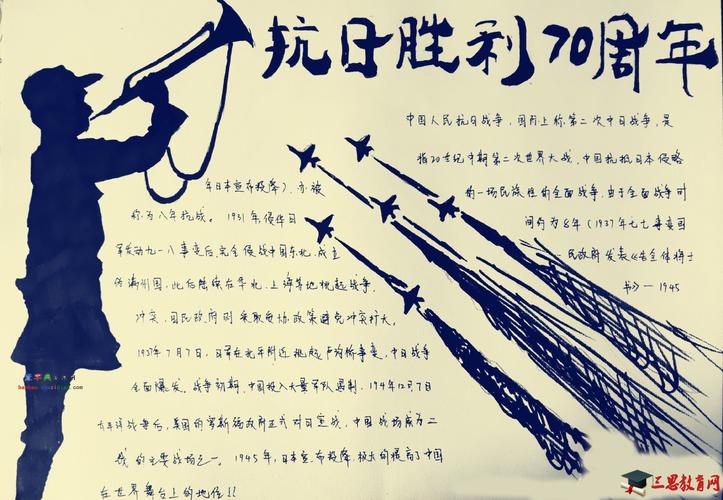 抗日胜利70周年
中国人民抗日战争，国际上称第二次中日战争，是
指20世纪中期第二次世界大战，中国抵抗日本侵略
的一场民族性的全面战争，由于全面战争时
间约为8年（1937年七七事变国
民政府发表《告全体将士
书》—1945
年日本宣布投降），亦被
称为八年抗战。1931年，侵华日
军发动九一八事变后，完全侵占中国东北，成立
伪满州国，此后陆续在华北，上海等地挑起战争，
冲突，国民政府则采取妥协政策避免冲突扩大。
1937年7月7日，日军在北平附近挑起卢沟桥事变，中日战争
全面爆发。战争初期，中国投入大量军队遏制，194年12月7日
太平洋战争后，美国的罗斯福政府正式对日宣战，中国战场成为二
战的主要战场之一。1945年，日本宣布投降，极大的提高了中国
在世界舞台上的地位！！
三思教育网